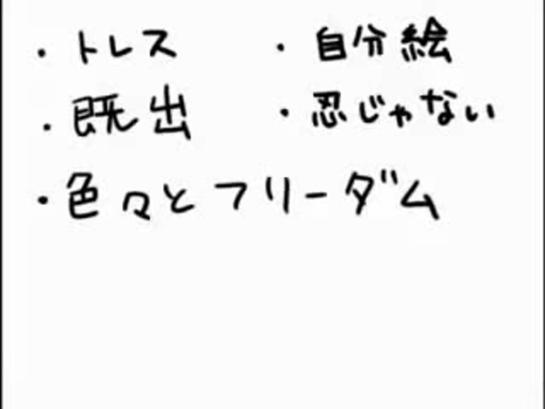 ・トレス ・自分絵
・既出 ・忍じゃない
・色々とフリーダム